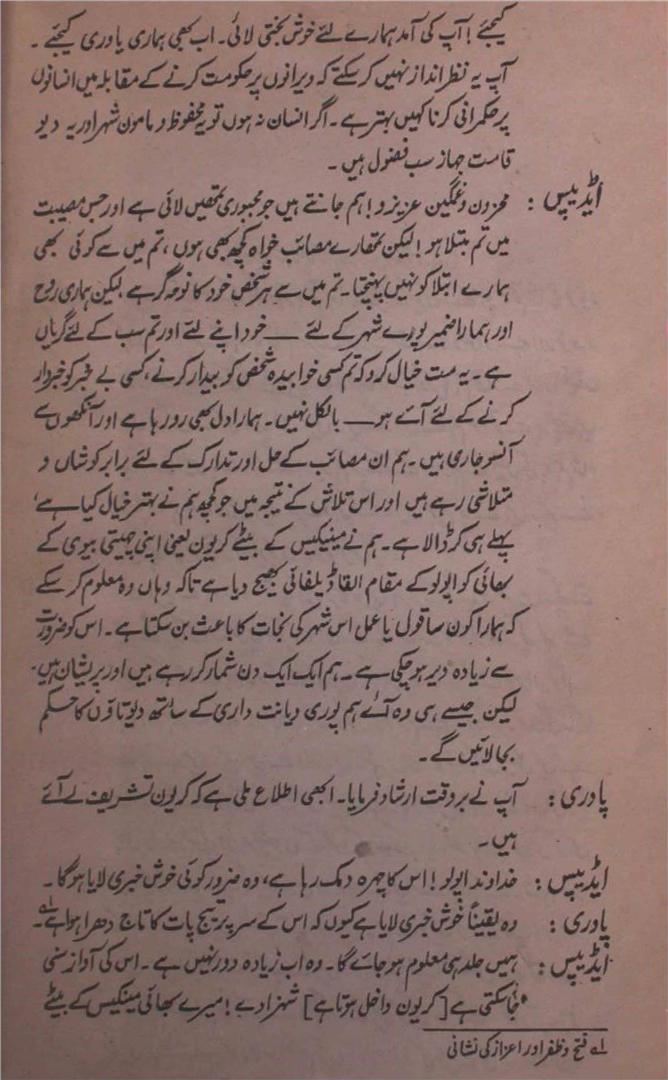 کیجئے! آپ کی آمد ہمارے لئے خوش بختی لائی۔ اب بھی ہماری یاوری کیجئے۔
آپ یہ نظر انداز نہیں کر سکتے کہ ویرانوں پر حکومت کرنے کے مقابلہ میں انسانوں
پر حکمرانی کرنا کہیں بہتر ہے۔ اگر انسان نہ ہوں تو یہ محفوظ و مامون شہر اور یہ دیو
قامت جہاز سب فضول ہیں۔
ایڈیپس: محزون و غمگین عزیزو! ہم جانتے ہیں جو مجبوری تمھیں لائی ہے اور جس مصیبت
میں تم مبتلا ہو! لیکن تمھارے مصائب خواہ کچھ بھی ہوں، تم میں سے کوئی بھی
ہمارے ابتلا کو نہیں پہنچتا۔ تم میں سے ہر شخص خود کا نوحہ گر ہے لیکن ہماری روح
اور ہمارا ضمیر پورے شہر کے لئے ــــ خود اپنے لئے اور تم سب کے لئے گریاں
ہے۔ یہ مت خیال کرو کہ تم کسی خوابیدہ شخص کو بیدار کرنے، کسی بے خبر کو خبردار
کرنے کے لئے آئے ہو ــــ بالکل نہیں۔ ہمارا دل بھی رو رہا ہے اور آنکھوں سے
آنسو جاری ہیں۔ ہم ان مصائب کے حل اور تدارک کے لئے برابر کوشاں و
متلاشی رہے ہیں اور اس تلاش کے نتیجہ میں جو کچھ ہم نے بہتر خیال کیا ہے،
پہلے ہی کر ڈالا ہے۔ ہم نے مینیکیس کے بیٹے کریون یعنی اپنی چہیتی بیوی کے
بھائی کو اپولو کے مقام القا ڈیلفائی بھیج دیا ہے تاکہ وہاں وہ معلوم کر سکے
کہ ہمارا کون سا قول یا عمل اس شہر کی نجات کا باعث بن سکتا ہے۔ اس کو ضرورت
سے زیادہ دیر ہو چکی ہے۔ ہم ایک ایک دن شمار کر رہے ہیں اور پریشان ہیں۔
لیکن جیسے ہی وہ آئے ہم پوری دیانت داری کے ساتھ دیوتاؤں کا حکم
بجا لائیں گے۔
پادری: آپ نے بروقت ارشاد فرمایا۔ ابھی اطلاع ملی ہے کہ کریون تشریف لے آئے
ہیں۔
ایڈیپس: خداوند اپولو! اس کا چہرہ دمک رہا ہے، وہ ضرور کوئی خوش خبری لایا ہوگا۔
پادری: وہ یقیناً خوش خبری لایا ہے کیوں کہ اس کے سر پر تیج پات کا تاج دھرا ہوا ہے۔ ؎۱
ایڈیپس: ہمیں جلد ہی معلوم ہو جائے گا۔ وہ اب زیادہ دور نہیں ہے۔ اس کی آواز سنی
جا سکتی ہے [کریون داخل ہوتا ہے] شہزادے! میرے بھائی مینیکیس کے بیٹے
؎۱ فتح و ظفر اور اعزاز کی نشانی